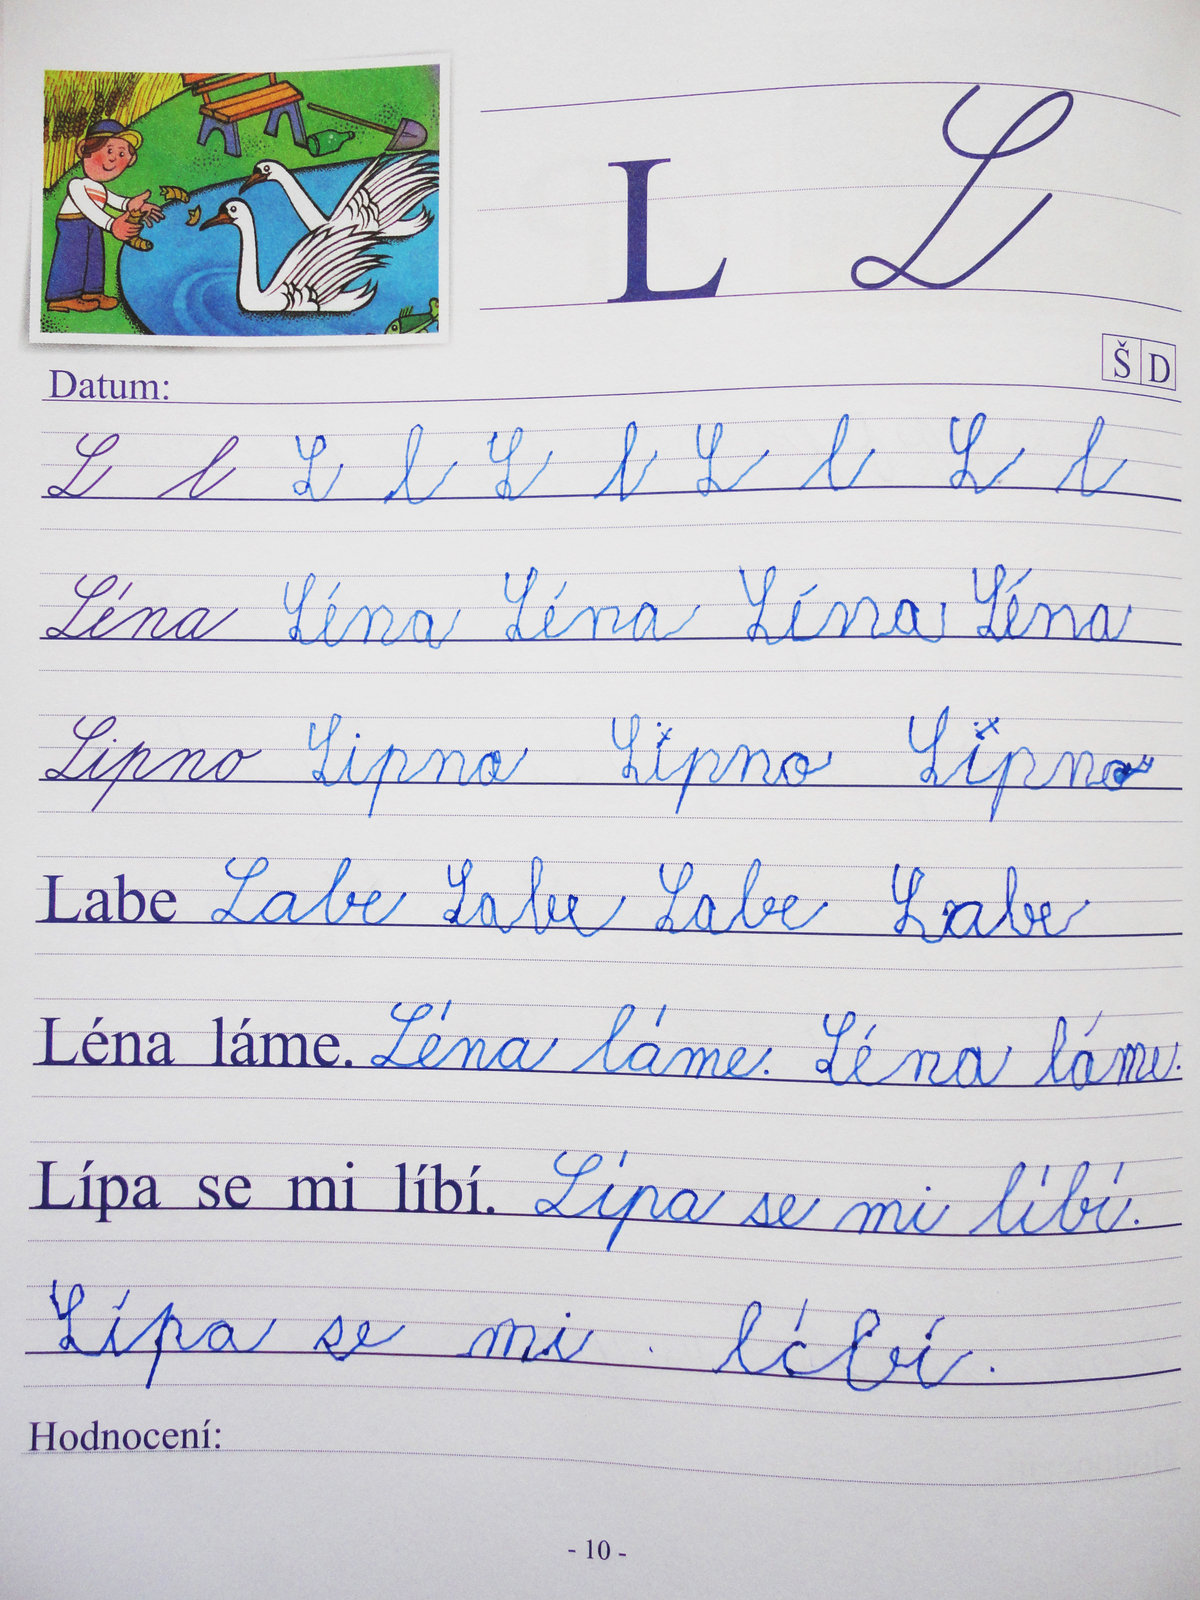 L L
Š D
Datum:
L l L l L l L l L l
Léna Léna Léna Léna Léna
Lipno Lipno Lipno Lipno
Labe Labe Labe Labe Labe
Léna láme. Léna láme. Léna láme.
Lípa se mi líbí. Lípa se mi líbí.
Lípa se mi . líbí.
Hodnocení:
- 10 -